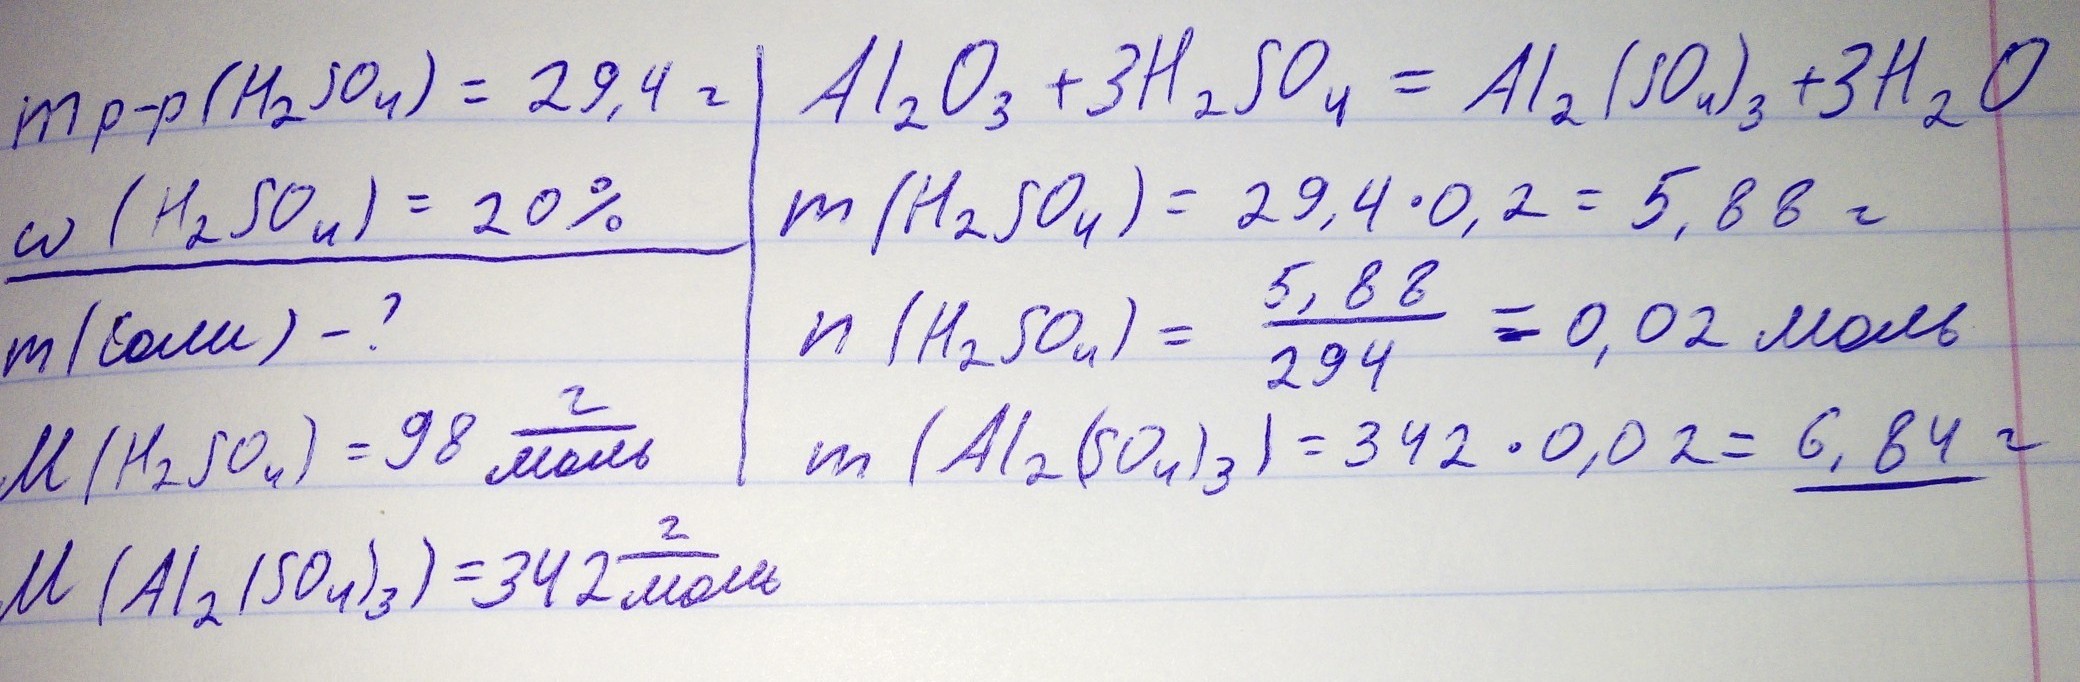 mр-р(H₂SO₄) = 29,4 г
w(H₂SO₄) = 20%
m(соли) - ?
M(H₂SO₄) = 98 г/моль
M(Al₂(SO₄)₃) = 342 г/моль
Al₂O₃ + 3H₂SO₄ = Al₂(SO₄)₃ + 3H₂O
m(H₂SO₄) = 29,4 · 0,2 = 5,88 г
n(H₂SO₄) = 5,88/294 = 0,02 моль
m(Al₂(SO₄)₃) = 342 · 0,02 = 6,84 г